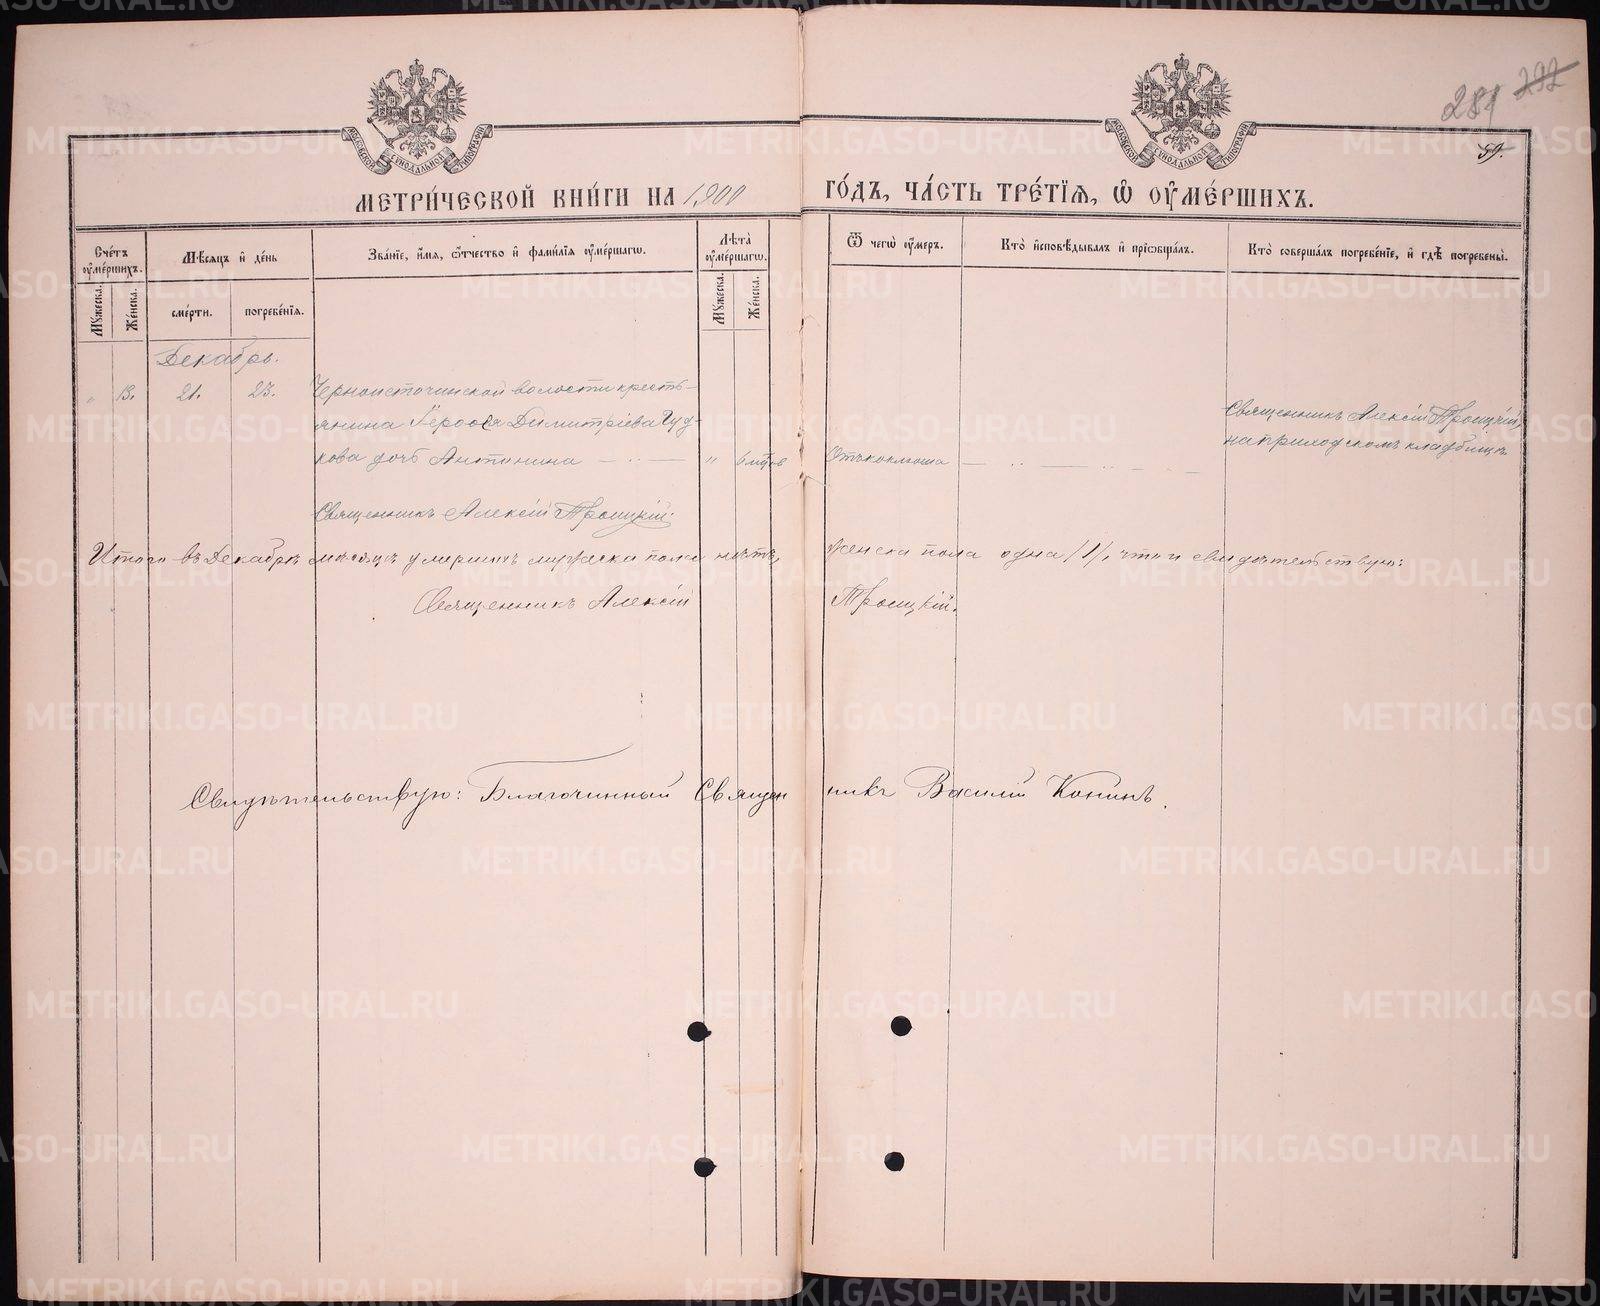 281 292
59.
МОСКОВСКОЙ СУНОДАЛЬНОЙ ТИПОГРАФІИ
МОСКОВСКОЙ СУНОДАЛЬНОЙ ТИПОГРАФІИ
МЕТРИ́ЧЕСКОЙ КНИ́ГИ НА 1900 ГО́ДЪ, ЧА́СТЬ ТРЕ́ТІѦ, Ѡ҆ ОУ҆МЕ́РШИХЪ.
Сче́тъ оу҆ме́ршихъ.
Мꙋ́жеска.
Же́нска.
Мѣ́сяцъ и҆ де́нь
сме́рти.
погребе́нїѧ.
Зва́нїе, и҆́мѧ, ѻ҆́тчество и҆ фами́лїѧ оу҆ме́ршагѡ.
Лѣ́та оу҆ме́ршагѡ.
Мꙋ́жеска.
Же́нска.
Ѿ чегѡ̀ оу҆́меръ.
Кто̀ и҆сповѣ́дывалъ и҆ прїѡбща́лъ.
Кто̀ соверша́лъ погребе́нїе, и҆ гдѣ̀ погребены̀.
Декабрь.
" 13. 21. 23. Черноисточинской волости кресть-
янина Димитріева Гуд-
кова дочь Антонина — " — " 6 мцѣв Отъ коклюша
Священникъ Алексій Троицкій
на приходскомъ кладбищѣ
Священникъ Алексій Троицкій.
Итого въ Декабрѣ мѣсяцѣ умершихъ мужеска пола нѣтъ, женска пола одна /1/, что и свидѣтельствую:
Священникъ Алексій Троицкій.
Свидѣтельствую: Благочинный Священникъ Василій Конинъ.
METRIKI.GASO-URAL.RU